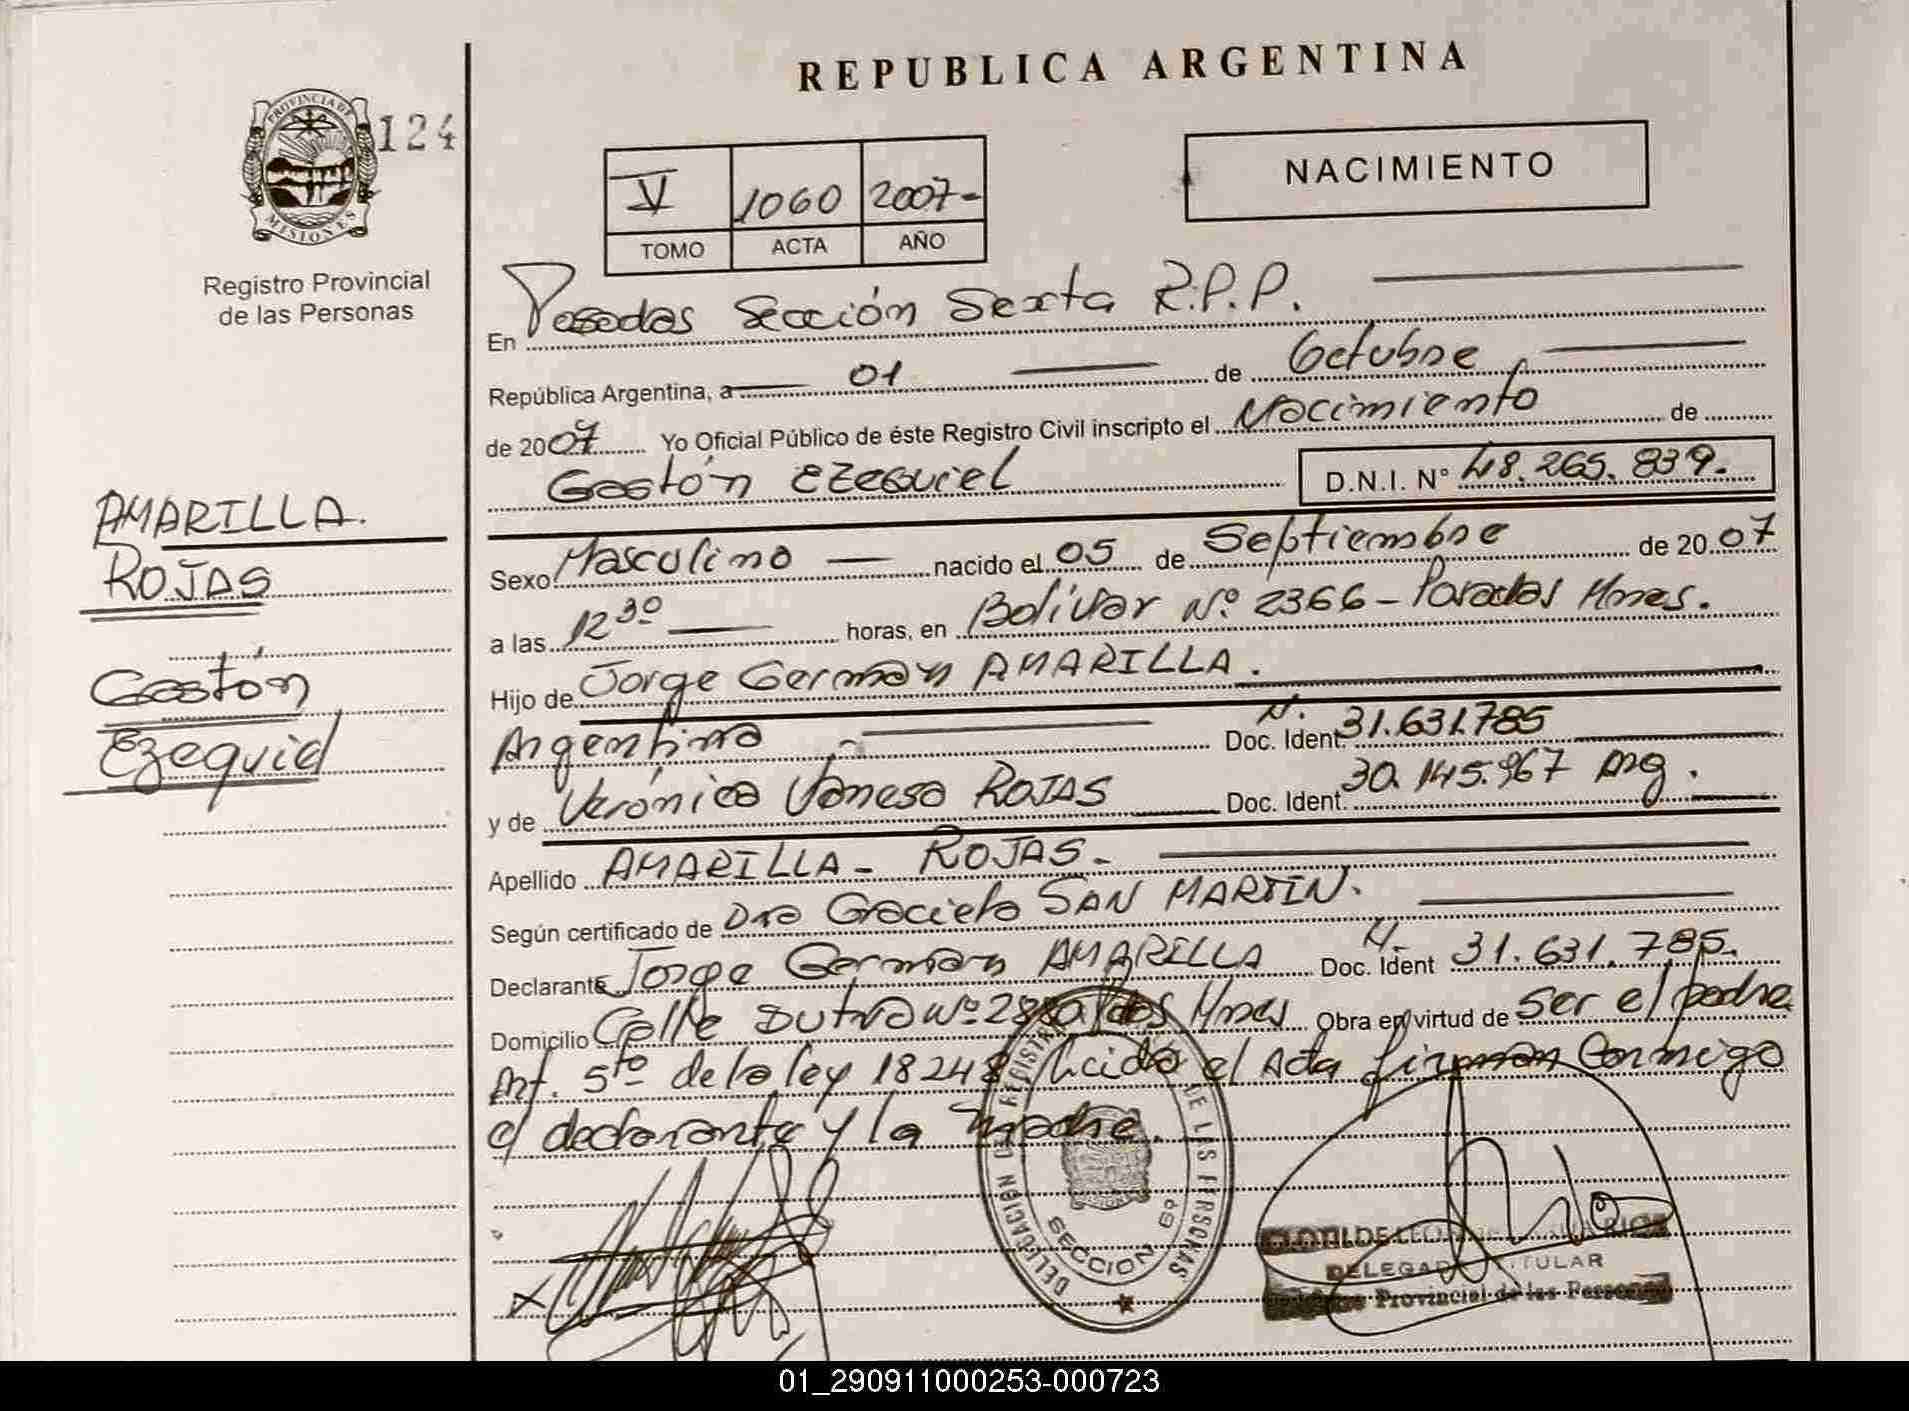 REPUBLICA ARGENTINA
PROVINCIA DE
MISIONES
124
Registro Provincial
de las Personas
V 1060 2007-
TOMO ACTA AÑO
NACIMIENTO
En Posadas Sección Sexta R.P.P.
República Argentina, a 01 de Octubre
de 2007 Yo Oficial Público de éste Registro Civil inscripto el Nacimiento de
Gastón Ezequiel D.N.I. N° 48.265.839.
AMARILLA.
ROJAS
Gastón
Ezequiel
Sexo Masculino nacido el 05 de Septiembre de 2007
a las 12 30 horas, en Bolívar Nº 2366 - Posadas Mnes.
Hijo de Jorge Germán AMARILLA.
Argentina Doc. Ident. N. 31.631.785
y de Verónica Vanesa ROJAS Doc. Ident. 30.145.967 Arg.
Apellido AMARILLA - ROJAS -
Según certificado de Dra Graciela SAN MARTIN.
Declarante Jorge Germán AMARILLA Doc. Ident N. 31.631.785.
Domicilio Calle Dutra Nº Mnes Obra en virtud de ser el padre
Art. 5to de la ley 18248 el Acta firman conmigo
el declarante y la madre.
DELEGACIÓN REGISTRO DE LAS PERSONAS
SECCION 6º
DELEGADA TITULAR
Provincial de las Personas
01_290911000253-000723